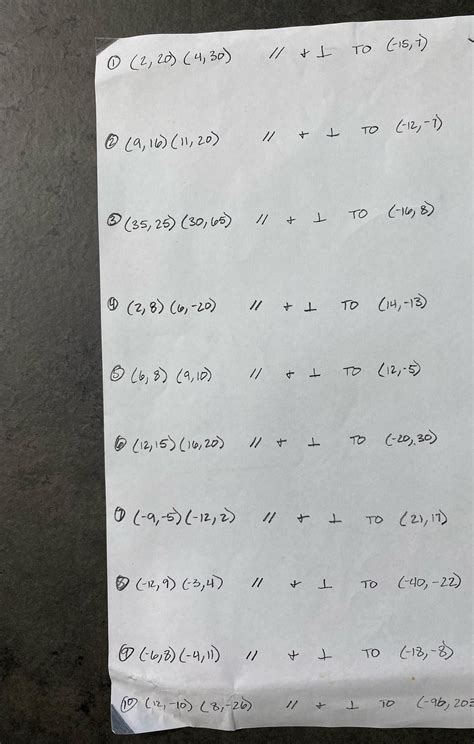 ① (2,20) (4,30) // + ⊥ TO (-15,7)
② (9,16) (11,20) // + ⊥ TO (-12,-7)
③ (35,25) (30,65) // + ⊥ TO (-16,8)
④ (2,8) (6,-20) // + ⊥ TO (14,-13)
⑤ (6,8) (9,10) // + ⊥ TO (12,-5)
⑥ (12,15) (16,20) // + ⊥ TO (-20,30)
⑦ (-9,-5) (-12,2) // + ⊥ TO (21,17)
⑧ (-12,9) (-3,4) // + ⊥ TO (-40,-22)
⑨ (-6,8) (-4,11) // + ⊥ TO (-18,-8)
⑩ (12,-10) (8,-26) // + ⊥ TO (-96,20